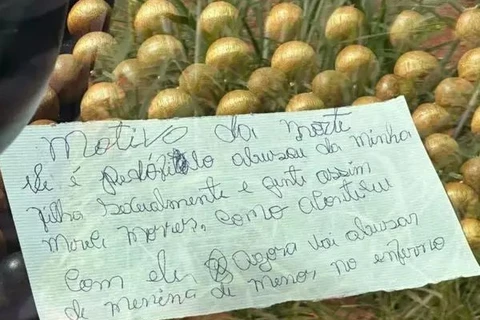 Motivo da morte
ele é pedófilo abusou da minha
filha sexualmente e gente assim
Morre, como aconteceu
Com ele, Agora vai abusar
de menina de menor no enferno